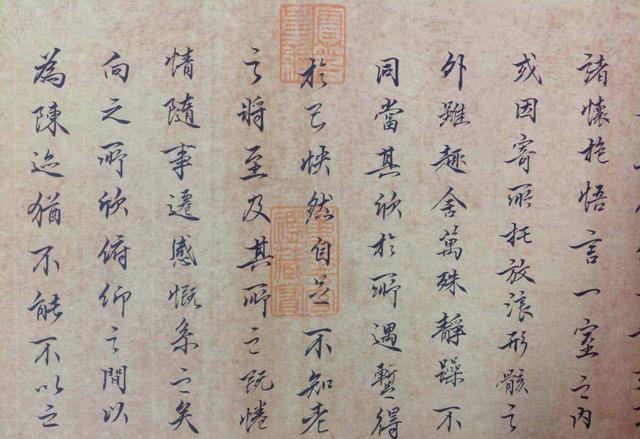 諸懷抱悟言一室之内
或因寄所托放浪形骸之
外雖趣舍萬殊靜躁不
同當其欣於所遇暫得
於己快然自足不知老
之將至及其所之既惓
情隨事遷感慨系之矣
向之所欣俯仰之間以
為陳迹猶不能不以之